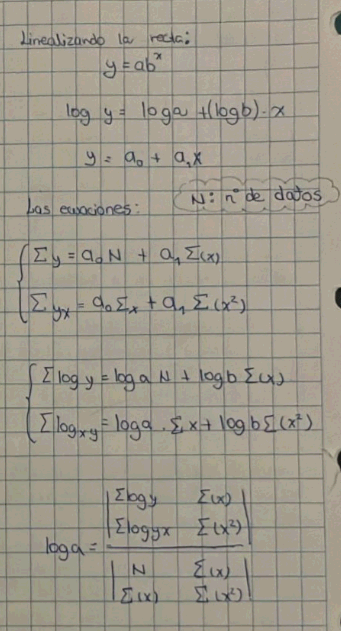 Linealizando la recta:
y = ab^x
log y = log a + (log b) · x
y = a₀ + a₁x
Las ecuaciones:
N: n° de datos
Σy = a₀ N + a₁ Σ(x)
Σyx = a₀ Σx + a₁ Σ(x²)
Σlog y = log a N + log b Σ(x)
Σlogxy = log a · Σx + log b Σ(x²)
Σlog y Σ(x)
Σlogyx Σ(x²)
log a =
N Σ(x)
Σ(x) Σ(x²)